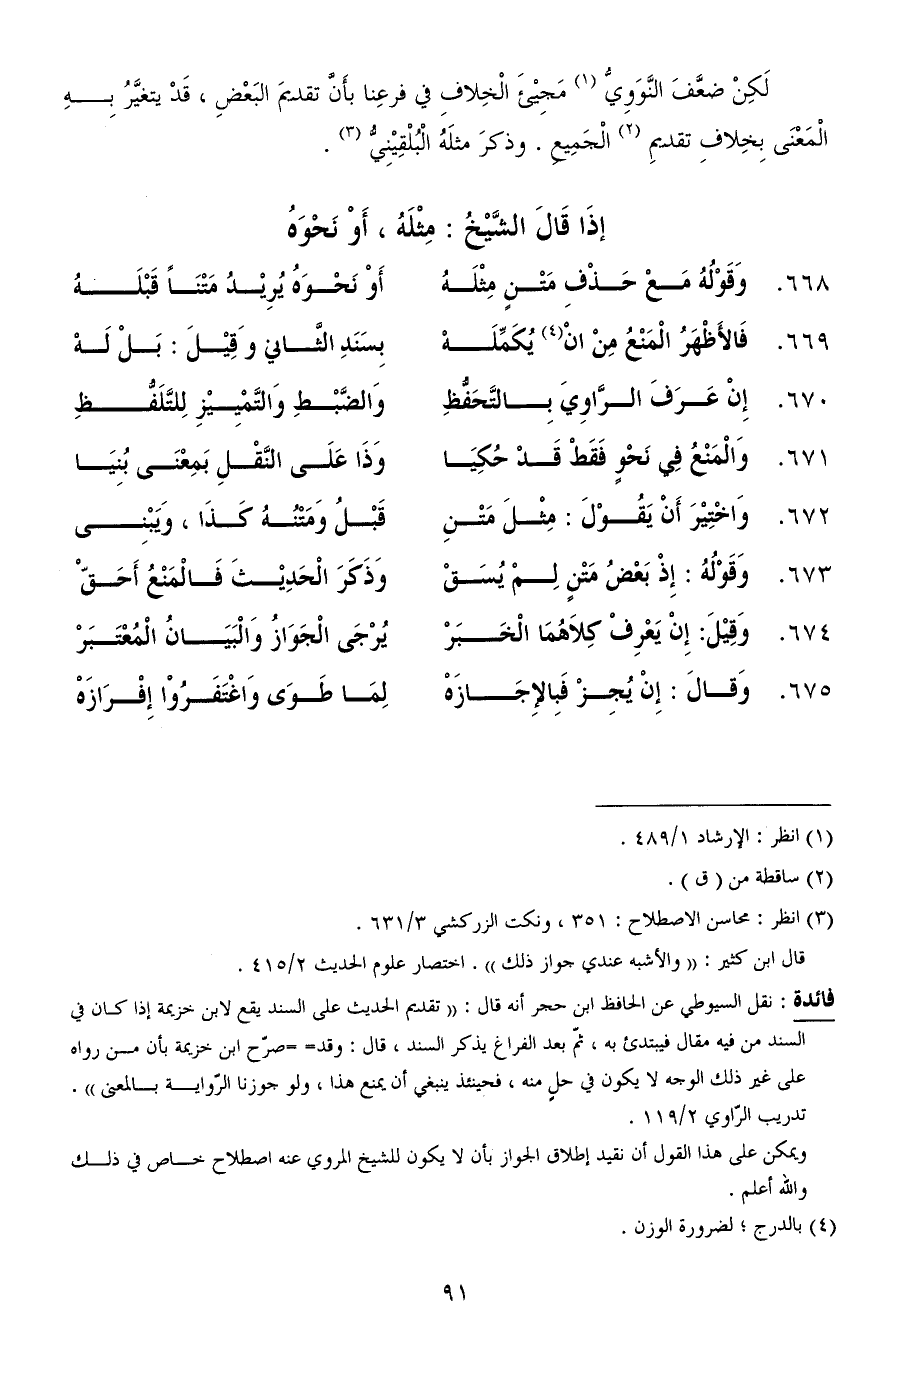 لَكِنْ ضعَّفَ النَّوَوِيُّ (١) مَجِيْئَ الْخِلافِ في فرعِنا بأَنَّ تقديمَ البَعْضِ ، قَدْ يتغيَّرُ بِهِ
الْمَعْنَى بِخِلافِ تقديمِ (٢) الْجَمِيعِ . وذكرَ مثلَهُ الْبُلْقِيْنِيُّ (٣) .
إذَا قَالَ الشَّيْخُ : مِثْلَهُ ، أَوْ نَحْوَهُ
٦٦٨. وَقَوْلُهُ مَعْ حَذْفِ مَتْنٍ مِثْلَهُ أَوْ نَحْوَهُ يُرِيْدُ مَتْنَاً قَبْلَهُ
٦٦٩. فَالأَظْهَرُ الْمَنْعُ مِنْ انْ(٤) يُكَمِّلَهْ بِسَنَدِ الثَّانِي وَقِيْلَ : بَلْ لَهْ
٦٧٠. إِنْ عَرَفَ الرَّاوِيَ بِالتَّحَفُّظِ وَالضَّبْطِ وَالتَّمْيِيْزِ لِلتَّلَفُّظِ
٦٧١. وَالْمَنْعُ فِي نَحْوٍ فَقَطْ قَدْ حُكِيَا وَذَا عَلَى النَّقْلِ بِمَعْنَى بُنِيَا
٦٧٢. وَاخْتِيْرَ أَنْ يَقُوْلَ : مِثْلَ مَتْنِ قَبْلُ وَمَتْنُهُ كَذَا ، وَيَبْنِي
٦٧٣. وَقَوْلُهُ : إذْ بَعْضُ مَتْنٍ لَمْ يُسَقْ وَذَكَرَ الْحَدِيْثَ فَالْمَنْعُ أَحَقّْ
٦٧٤. وَقِيْلَ: إِنْ يَعْرِفْ كِلاَهُمَا الْخَبَرْ يُرْجَى الْجَوَازُ وَالْبَيَانُ الْمُعْتَبَرْ
٦٧٥. وَقَالَ : إِنْ يُجِزْ فَبِالإِجَازَهْ لِمَا طَوَى وَاغْتَفَرُوْا إِفْرَازَهْ
(١) انظر : الإرشاد ٤٨٩/١ .
(٢) ساقطة من ( ق ) .
(٣) انظر : محاسن الاصطلاح : ٣٥١ ، ونكت الزركشي ٦٣١/٣ .
قال ابن كثير : (( والأشبه عندي جواز ذلك )) . اختصار علوم الحديث ٤١٥/٢ .
فائدة : نقل السيوطي عن الحافظ ابن حجر أنه قال : (( تقديم الحديث على السند يقع لابن خزيمة إذا كان في
السند من فيه مقال فيبتدئ به ، ثمّ بعد الفراغ يذكر السند ، قال : وقد= =صرّح ابن خزيمة بأن من رواه
على غير ذلك الوجه لا يكون في حلٍ منه ، فحينئذ ينبغي أن يمنع هذا ، ولو جوزنا الرّواية بالمعنى )) .
تدريب الرّاوي ١١٩/٢ .
ويمكن على هذا القول أن نقيد إطلاق الجواز بأن لا يكون للشيخ المروي عنه اصطلاح خاص في ذلك
والله أعلم .
(٤) بالدرج ؛ لضرورة الوزن .
٩١